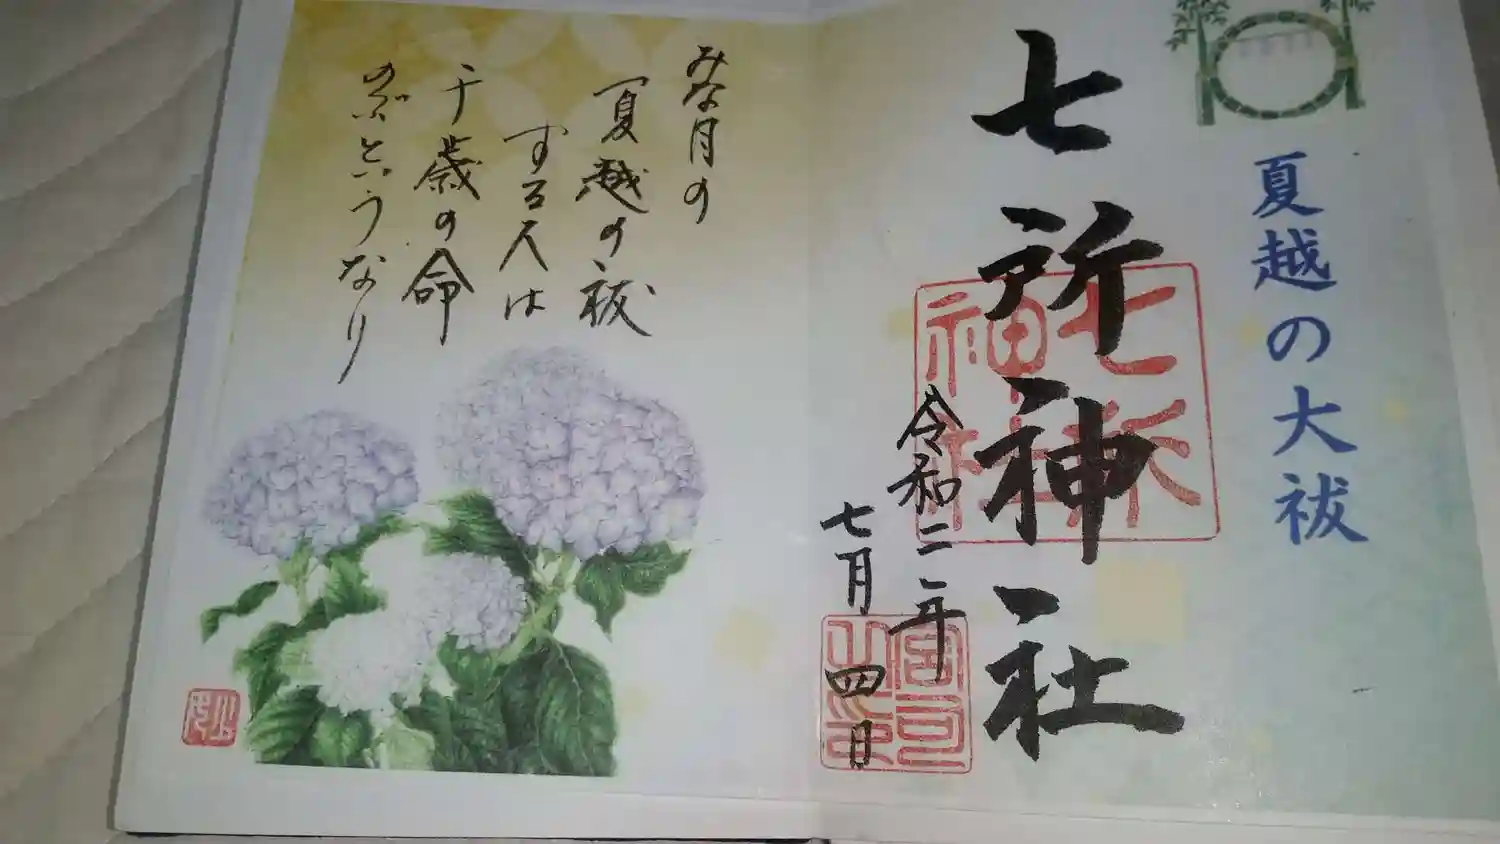 夏越の大祓
七所神社
七所
神社
令和二年
七月四日
宮司
之印
みな月の
夏越の祓
する人は
千歳の命
のぶといふなり